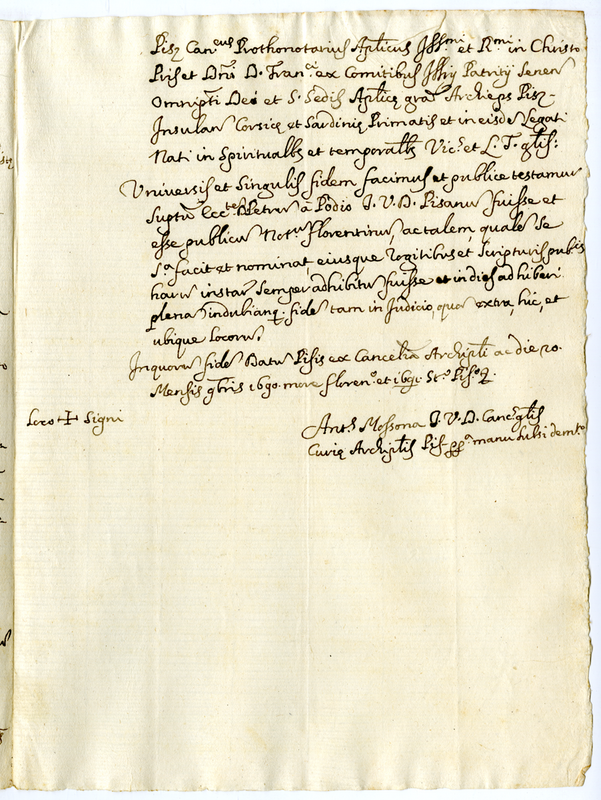 Pisę Can:cus Prothonotarius Aplicus Illmi et Rmi in Christo
Pris et Dni D. Fran:ci ex Comitibus Illrij Patritij Senen
Omnipti Dei et S. Sedis Aplicę gra Archieps Pisę
Insularu Corsicę et Sardinię Primatis et in eisde Legati
Nati in Spiritualbs et temporalbs Vic: et L. T. glis:
Universis et Singulis fidem facimus et publice testamur
Suptu Ecc:te D. Petru à Podio I. V. D. Pisanu fuisse et
esse publicu Not:u Florentinu, ac talem, quale Se
S:a facit et nominat, eiusque rogitibus et Scripturis pub:is
haru instar Semper adhibitu fuisse et in dies adhiberi
plena indubiaq. fide tam in Judicio, qua extra, hic, et
ubique locoru.
In quoru fide Datu Pisis ex Cancelia Archiplī ac die 20.
Mensis 9bris 1690. more floren:o et 1691. St:o Pis:o
Loco + Signi
Ants Mossona I. V. D. Canc: glis
Curię Archiplis Pis. pp:a manu Subs: